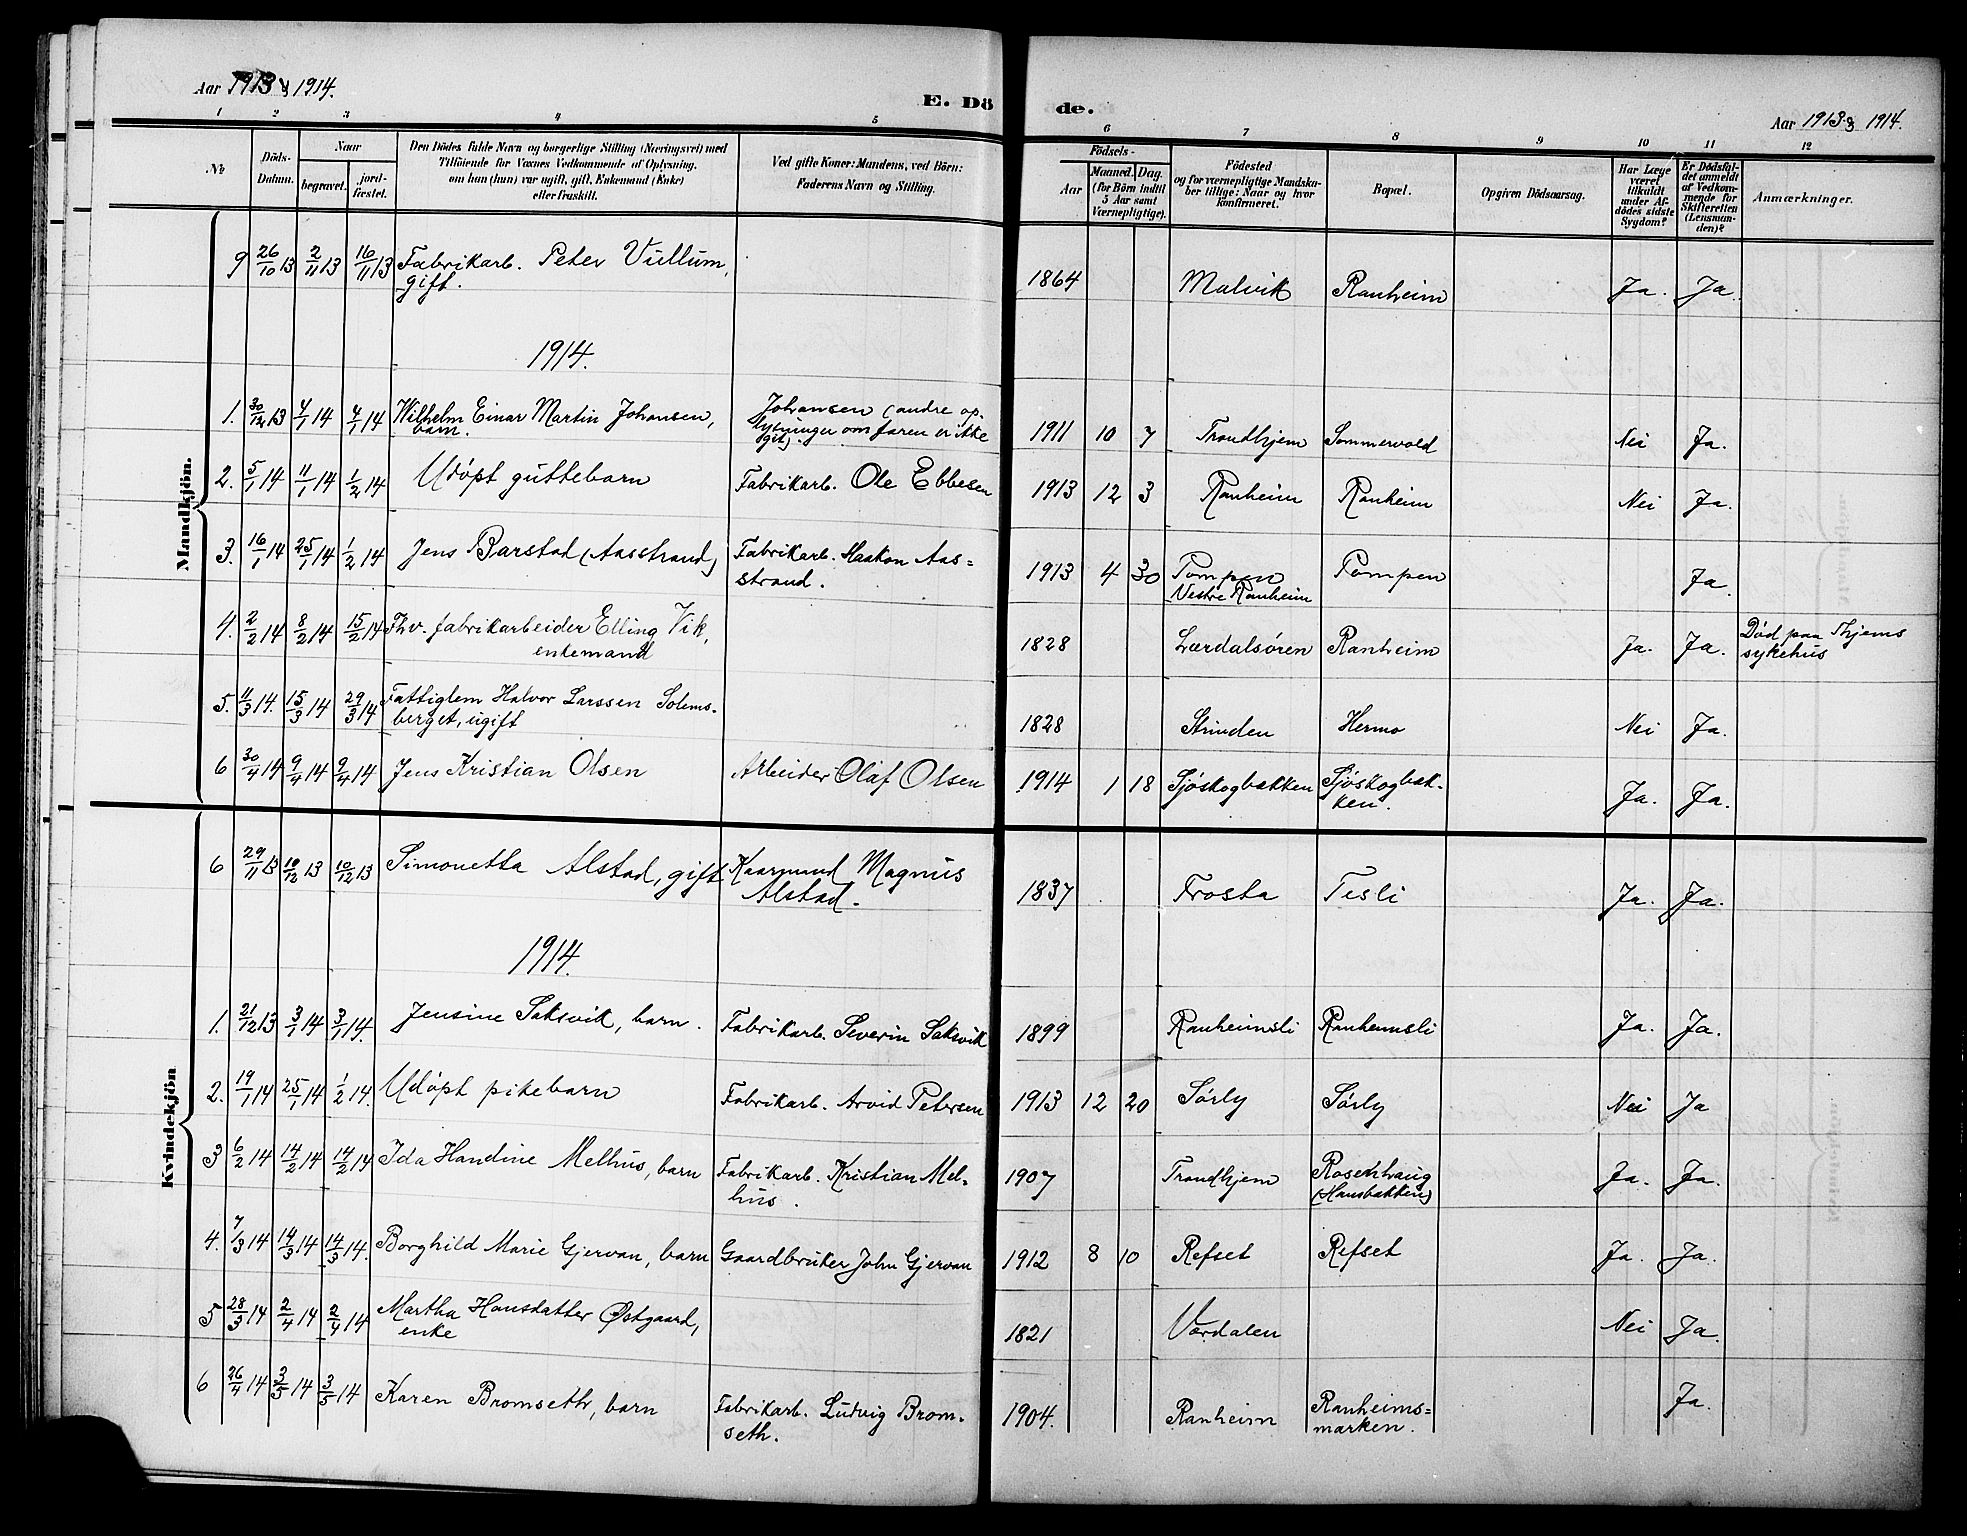 Aar 1913 & 1914.
E. Dö
de.
Aar 1913 & 1914.
1 2 3 4 5 6 7 8 9 10 11 12
No
Döds-
Datum.
Naar
begravet.
jord-
fæstet.
Den Dödes fulde Navn og borgerlige Stilling (Næringsvei) med
Tilföiende for Voxnes Vedkommende af Oplysning,
om han (hun) var ugift, gift, Enkemand (Enke)
eller fraskilt.
Ved gifte Koner: Mandens, ved Börn:
Faderens Navn og Stilling.
Födsels-
Aar
Maaned. Dag.
(for Börn indtil
5 Aar samt
Værnepligtige).
Födested
og for værnepligtige Mandska-
ber tillige: Naar og hvor
konfirmeret.
Bopæl.
Opgiven Dödsaarsag.
Har Læge
været
tilkaldt
under Af-
dödes sidste
Sygdom?
Er Dödsfal-
det anmeldt
af Vedkom-
mende for
Skifteretten
(Lensman-
den)?
Anmærkninger.
Mandkjön.
9 26/10 13 2/11 13 16/11 13 Fabrikarb. Peter Vullum, 1864 Malvik Ranheim Ja. Ja.
gift.
1914.
1. 30/12 13 4/1 14 4/1 14 Wilhelm Einar Martin Johansen, Johansen (andre op- 1911 10 7 Trondhjem Sommervold Nei Ja.
barn. lysninger om faren er ikke
git).
2. 5/1 14 11/1 14 1/2 14 Udöpt guttebarn Fabrikarb. Ole Ebbesen 1913 12 3 Ranheim Ranheim Nei Ja.
3. 16/1 14 25/1 14 1/2 14 Jens Barstad (Aasstrand) Fabrikarb. Haakon Aas= 1913 4 30 Pompen Pompen Ja.
strand. Vestre Ranheim
4. 2/2 14 8/2 14 15/2 14 Fhv. fabrikarbeider Elling Vik, 1828 Lærdalsören Ranheim Ja. Ja. Död paa Thjems
enkemand sykehus
5. 11/3 14. 15/3 14 29/3 14 Fattiglem Halvor Larssen Solems- 1828 Strinden Hermo Nei Ja.
berget, ugift
6 30/4 14 9/4 14 9/4 14 Jens Kristian Olsen Arbeider Olaf Olsen 1914 1 18 Sjöskogbakken Sjöskogbak- Ja. Ja.
ken.
Kvindekjön
6 29/11 13 10/12 13 10/12 13 Simonetta Alstad, gift Kaarmand Magnus 1837 Frosta Tesli Ja. Ja.
Alstad.
1914.
1. 21/12 13 3/1 14 3/1 14. Jensine Saksvik, barn. Fabrikarb. Severin Saksvik 1899 Ranheimsli Ranheimsli Ja. Ja.
2. 19/1 14 25/1 14 1/2 14. Udöpt pikebarn Fabrikarb. Arvid Petersen 1913 12 20 Sörly Sörly Nei Ja
3 6/2 14 14/2 14 14/2 14 Ida Handine Melhus, barn Fabrikarb. Kristian Mel- 1907 Trondhjem Rosenhaug Ja. Ja.
hus. (Hansbakken)
4. 7/3 14 14/3 14 14/3 14. Borghild Marie Gjervan, barn Gaardbruker John Gjervan 1912 8 10 Refset Refset Ja. Ja.
5 28/3 14 2/4 14 2/4 14 Martha Hansdatter Östgaard, 1821 Værdalen Nei Ja.
enke
6 26/4 14 3/5 14 3/5 14 Karen Bromseth, barn Fabrikarb. Ludvig Brom- 1904. Ranheim Ranheims= Ja.
seth. marken.